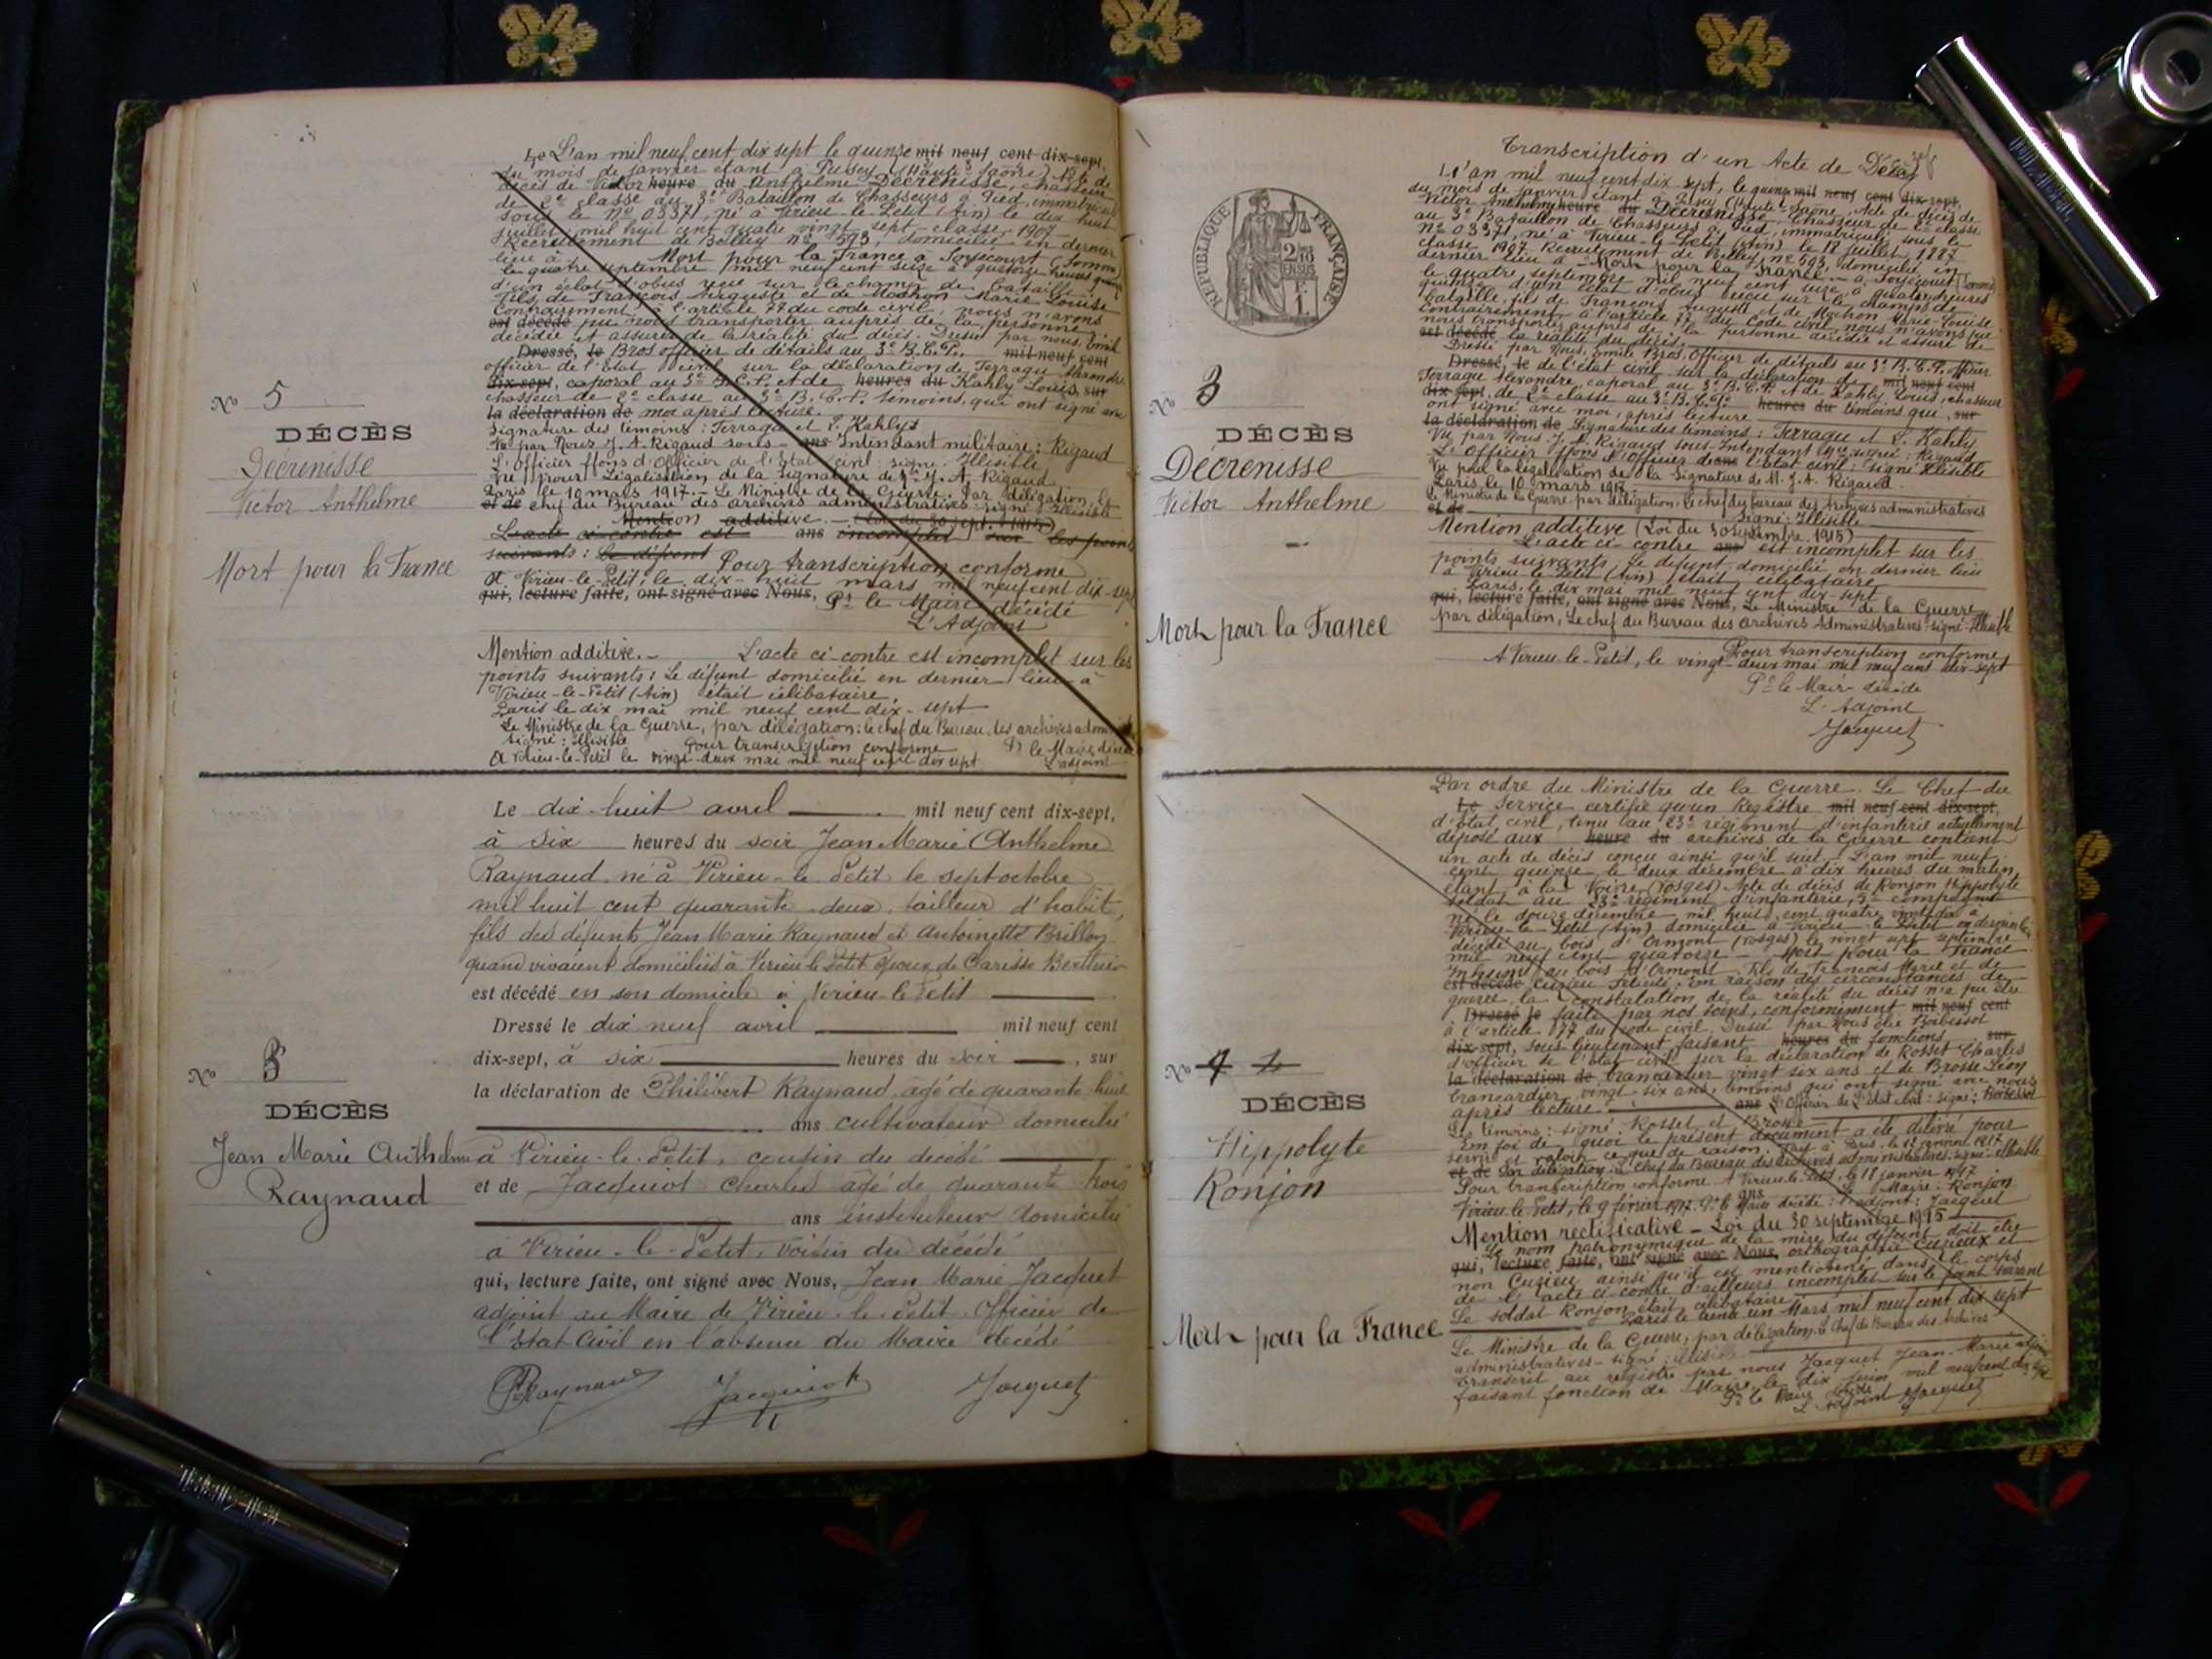 Le L'an mil neuf cent dix sept le quinze mil neuf cent dix-sept,
du mois de janvier étant à Pusey (Haute Saône) Acte de
décès de Victor heure du Anthelme Décrenisse, chasseur
de 2e classe au 3e Bataillon de Chasseurs à Pied, immatriculé
sous le No 03371, né à Virieu-le-Petit (Ain) le dix huit
juillet mil huit cent quatre vingt sept classe 1907
Recrutement de Belley No 593, domicilié en dernier
lieu à Mort pour la France à Soyecourt (Somme)
le quatre septembre mil neuf cent seize à quatorze heures quinze
d'un éclat d'obus reçu sur le champ de bataille
fils de François Auguste et de Mochon Marie Louise
Contrairement à l'article 77 du code civil, nous n'avons
est décédé pu nous transporter auprès de la personne
décédée et assurés de la réalité du décès. Dressé par nous, Emile
Dressé, le Bros officier de détails au 3e B.C.P. mil neuf cent
officier de l'Etat civil sur la déclaration de Terraque Alexandre
dix-sept, caporal au 3e B.C.P. et de heures du Kahly Louis, sur
chasseur de 2e classe au 3e B.C.P. témoins, qui ont signé avec
la déclaration de moi après lecture.
Signature des témoins : Terraque et L. Kahly
Vu par Nous J. A. Rigaud sous- ans Intendant militaire : Rigaud
L'officier ffons d'Officier de l'Etat civil : signé : Illisible
Vu pour Légalisation de la signature de Mr J. A. Rigaud
Paris le 10 mars 1917. - Le Ministre de la Guerre. Par délégation, le
et de chef du Bureau des archives administratives : signé : Illisible
Mention additive - (Loi du 30 sept. 1915)
L'acte ci-contre est ans incomplet sur les points
suivants : Le défunt Pour transcription conforme
A Virieu-le-Petit, le dix-huit mars mil neuf cent dix-sept
qui, lecture faite, ont signé avec Nous, Pr le Maire décédé
L'Adjoint
No 5
DÉCÈS
Décrenisse
Victor Anthelme
Mort pour la France
Mention additive. - L'acte ci-contre est incomplet sur les
points suivants : Le défunt domicilié en dernier lieu à
Virieu-le-Petit (Ain) était célibataire.
Paris le dix mai mil neuf cent dix-sept
Le Ministre de la Guerre, par délégation : le chef du Bureau des archives
signé : Illisible Pour transcription conforme Pr le Maire décédé
A Virieu-le-Petit le vingt-deux mai mil neuf cent dix sept L'adjoint
Le dix-huit avril mil neuf cent dix-sept,
à six heures du soir Jean Marie Anthelme
Raynaud né à Virieu-le-Petit le sept octobre
mil huit cent quarante-deux, tailleur d'habit,
fils des défunts Jean Marie Raynaud et Antoinette Brillon
quand vivaient domiciliés à Virieu le Petit époux de Claresse Berthier
est décédé en son domicile à Virieu-le-Petit
Dressé le dix neuf avril mil neuf cent
dix-sept, à six heures du soir, sur
la déclaration de Philibert Raynaud, âgé de quarante-huit
ans cultivateur domicilié
à Virieu-le-Petit, cousin du décédé
et de Jacquiot Charles âgé de quarante trois
ans instituteur domicilié
à Virieu-le-Petit, voisin du décédé
qui, lecture faite, ont signé avec Nous, Jean Marie Jacquet
adjoint au Maire de Virieu-le-Petit Officier de
l'Etat Civil en l'absence du Maire décédé
Raynaud Jacquiot Jacquet
No 3
DÉCÈS
Jean Marie Anthelme
Raynaud
Transcription d'un Acte de Décès
L'an mil neuf cent dix sept, le quinze mil neuf cent dix-sept,
du mois de janvier étant à Pusey (Haute-Saône, Acte de décès de
Victor Anthelme heure du Décrenisse Chasseur de 2e classe
au 3e Bataillon de Chasseurs à Pied, immatriculé sous le
No 03371, né à Virieu-le-Petit (Ain) le 18 juillet 1887
classe 1907 Recrutement de Belley No 593, domicilié en
dernier lieu à - Mort pour la France - à Soyécourt (Somme)
le quatre septembre mil neuf cent seize à quatorze heures
quinze d'un éclat d'obus reçu sur le champ de
bataille, fils de François Auguste et de Mochon Marie Louise
Contrairement à l'article 77 du Code civil, nous n'avons pu
nous transporter auprès de la personne décédée et assuré de
est décédé la réalité du décès.
Dressé par Nous, Emile Bros, Officier de détails au 3e B.C.P. Officier
Dressé, le de l'état civil sur la déclaration de mil neuf cent
Terraque Alexandre, caporal au 3e B.C.P. et de Kahly Louis, chasseur
dix-sept, de 2e classe au 3e B.C.P. heures du témoins qui, sur
ont signé avec moi, après lecture
la déclaration de Signature des témoins : Terraque et L. Kahly
Vu par Nous J. A. Rigaud sous-Intendant Mre signé : Rigaud
L'Officier ffons d'Officier de ans l'état civil : signé Illisible
Vu pour la légalisation de la signature de M. J. A. Rigaud.
Paris, le 10 mars 1917
Le Ministre de la Guerre par délégation, le chef du bureau des Archives administratives
et de signé : Illisible
Mention additive (Loi du 30 septembre 1915)
L'acte ci-contre ans est incomplet sur les
points suivants : Le défunt domicilié en dernier lieu
à Virieu-le-Petit (Ain) était célibataire
Paris, le dix mai mil neuf cent dix-sept
qui, lecture faite, ont signé avec Nous, Le Ministre de la Guerre
par délégation, Le chef du Bureau des archives Administratives - signé - Illisible
Pour transcription conforme
A Virieu-le-Petit, le vingt-deux mai mil neuf cent dix-sept
Pr le Maire décédé
L'Adjoint
Jacquet
RÉPUBLIQUE FRANÇAISE
No 3
DÉCÈS
Décrenisse
Victor Anthelme
Mort pour la France
Par ordre du Ministre de la Guerre. Le Chef du
Le Service certifie qu'un Registre mil neuf cent dix-sept,
d'état civil, tenu au 23e régiment d'infanterie actuellement
déposé aux heure du archives de la Guerre contient
un acte de décès conçu ainsi qu'il suit : L'an mil neuf
cent quinze le deux décembre à dix heures du matin
étant à la Voivre (Vosges) Acte de décès de Ronjon Hippolyte
soldat au 23e régiment d'infanterie, 5e compagnie
né le douze décembre mil huit cent quatre vingt dix à
Virieu-le-Petit (Ain) domicilié à Virieu-le-Petit en dernier lieu
décédé au bois d'Ormont (Vosges) le vingt sept septembre
mil neuf cent quatorze - Mort pour la France
Inhumé au bois d'Ormont Fils de François Marie et de
est décédé Cuzieu Félicité. En raison des circonstances de
guerre la constatation de la réalité du décès n'a pu être
Dressé le faite par nos soins, conformément mil neuf cent
à l'article 77 du code civil. Dressé par Nous
dix-sept, sous-lieutenant faisant heures du fonctions sur
d'officier de l'état civil, sur la déclaration de Rosset Charles
la déclaration de brancardier vingt six ans et de Brosse Léon
brancardier vingt six ans, témoins qui ont signé avec nous
après lecture. ans L'Officier de l'état civil : signé :
Les témoins : signé : Rosset et Brosse
En foi de quoi le présent document a été délivré pour
servir et valoir ce que de raison. Fait à Paris, le 12 janvier 1917
et de Par délégation, Le Chef du Bureau des Archives administratives : signé : Illisible
Pour transcription conforme A Virieu-le-Petit, le 18 janvier 1917
ans Le Maire : Ronjon
Virieu-le-Petit, le 9 février 1917. Pr le Maire décédé : L'adjoint : Jacquet
Mention rectificative - Loi du 30 septembre 1915
Le nom patronymique de la mère du défunt doit être
qui, lecture faite, ont signé avec Nous, orthographié Cuzieux et
non Cuzieu ainsi qu'il est mentionné dans le corps
de l'acte ci-contre d'ailleurs incomplet sur le point suivant
Le soldat Ronjon était célibataire
Paris le trente un Mars mil neuf cent dix sept
Le Ministre de la Guerre, par délégation, le Chef du Bureau des Archives
administratives - signé : illisible
transcrit au registre par nous Jacquet Jean-Marie adjoint
faisant fonction de Maire, le dix juin mil neuf cent dix sept
Pr le Maire décédé
L'Adjoint Jacquet
No 4
DÉCÈS
Hippolyte
Ronjon
Mort pour la France